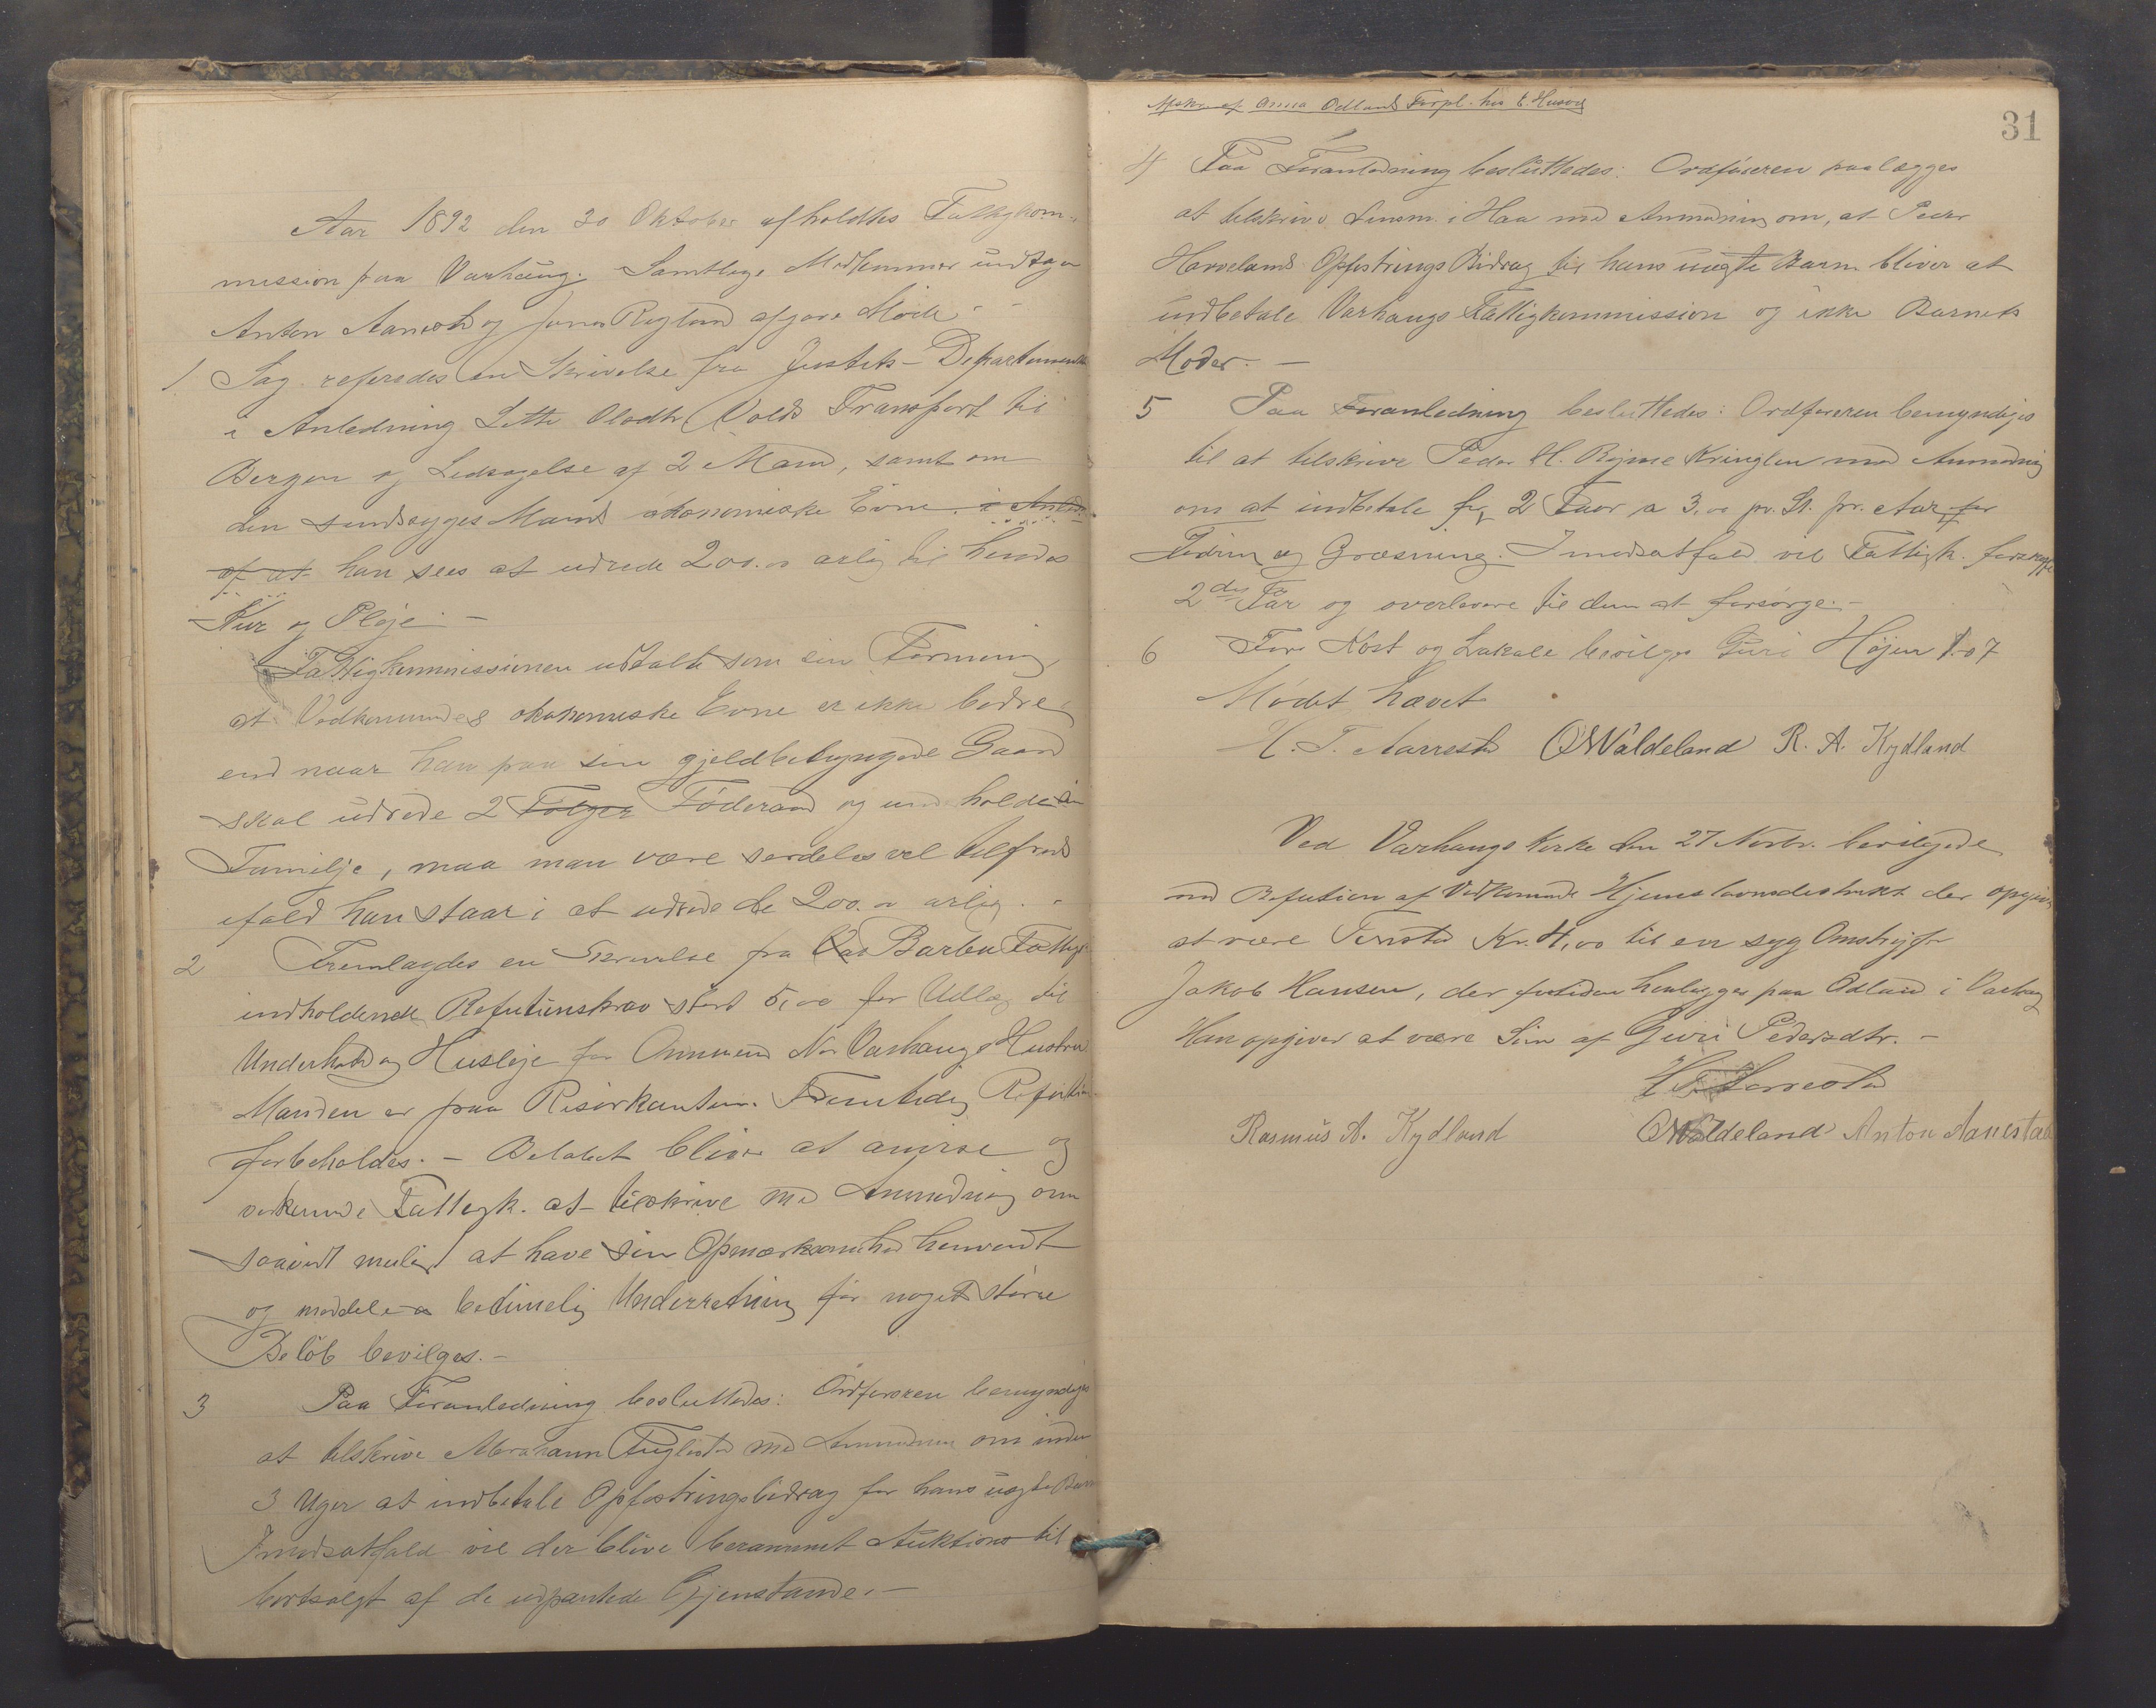 Aar 1892 den 30 Oktober afholdtes Fattigkom-
mission paa Varhaug. Samtlige Medlemmer undtagen
Anton Aanestad og Jonas Rugland afgave Møde
1 Sag refereredes en Skrivelse fra Justits-Departementet
i Anledning Olsdtr. Volds Transport til
Bergen og Ledsagelse af 2 Mand, samt om
den sindssyges Mands økonomiske Evne. i Anledn
af at han sees at udrede 200.00 arlig til hendes
Kur og Pleje. -
Fattigkommissionen udtalte som sin Formening
at Vedkommendes økonomiske Evne er ikke bedre
end naar han paa sin gjeldbetyngede Gaard
skal udrede 2 Føderaad og underholde sin
Familje, maa man være særdeles vel tilfreds
ifald han staar i at udrede de 200.00 arlig. -
2 Fremlagdes en Skrivelse fra Barbu Fattigk
indholdende Refutionskrav stort 5,00 for Udlæg til
Underhold og Husleje for Varhaugs Hustru
Manden er paa Risørkanten. Fremtidig Refution
forbeholdes. - Beløbet bliver at anvise og
vedkommende Fattigk. at tilskrive med Anmodning om
saavidt muligt at have sin Opmærksomhed henvendt
og meddele betimelig Underretning før noget større
Beløb bevilges. -
3 Paa Foranledning besluttedes: Ordføreren bemyndiges
at tilskrive Abraham Fuglestad med Anmodning om inden
3 Uger at indbetale Opfostringsbidrag for hans uægte Barn
Imodsatfald vil der blive berammet Auktion til
bortsalgt af de udpantede Gjenstande. -
Anna Odland Forpl. hos
31
4 Paa Foranledning besluttedes: Ordføreren paalægges
at tilskrive Lensm. i Haa med Anmodning om, at Peder
Harvelands Opfostrings Bidrag til hans uægte Barn bliver at
indbetale Varhaugs Fattigkommission og ikke Barnets
Moder. -
5 Paa Foranledning besluttedes: Ordføreren bemyndiges
til at tilskrive Peder H. Kringlen med Anmodning
om at indbetale for 2 Faar a 3,00 pr. St. pr. Aar for
Fodring og Græsning. I modsatfald vil Fattigk.
2 Far og overlevere til dem at forsørge. -
6 For Kost og Lokale bevilges Guri Højen
Mødet hævet
H. T. Aarrestad OWaldeland R. A. Kydland
Ved Varhaugs Kirke den 27 Novbr. bevilgede
med Refution af Vedkommende Hjemstavnsdistrikt der opgives
at være Kr. 4,00 til en syg Omstrejfer
Jakob Hansen, der fortiden henligger paa Odland i Varhaug
Han opgiver at være Søn af Guri Pedersdtr. -
H T Aarrestad
Rasmus A. Kydland OWaldeland Anton Aanestad